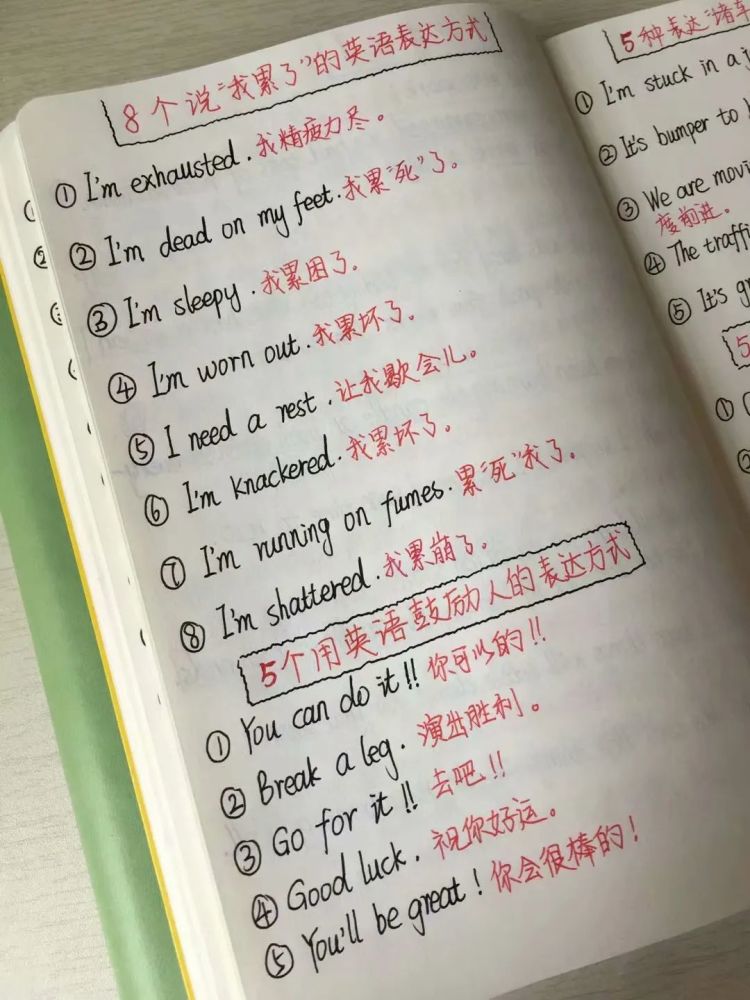 8个说"我累了"的英语表达方式
① I'm exhausted. 我精疲力尽。
② I'm dead on my feet. 我累"死"了。
③ I'm sleepy. 我累困了。
④ I'm worn out. 我累坏了。
⑤ I need a rest. 让我歇会儿。
⑥ I'm knackered. 我累坏了。
⑦ I'm running on fumes. 累"死"我了。
⑧ I'm shattered. 我累崩了。
5个用英语鼓励人的表达方式
① You can do it!! 你可以的!!
② Break a leg. 演出胜利。
③ Go for it!! 去吧!!
④ Good luck. 祝你好运。
⑤ You'll be great! 你会很棒的!
5种表达"堵车
① I'm stuck in a
② It's bumper to
③ We are
度前进。
④ The
⑤ It's
5
①
②